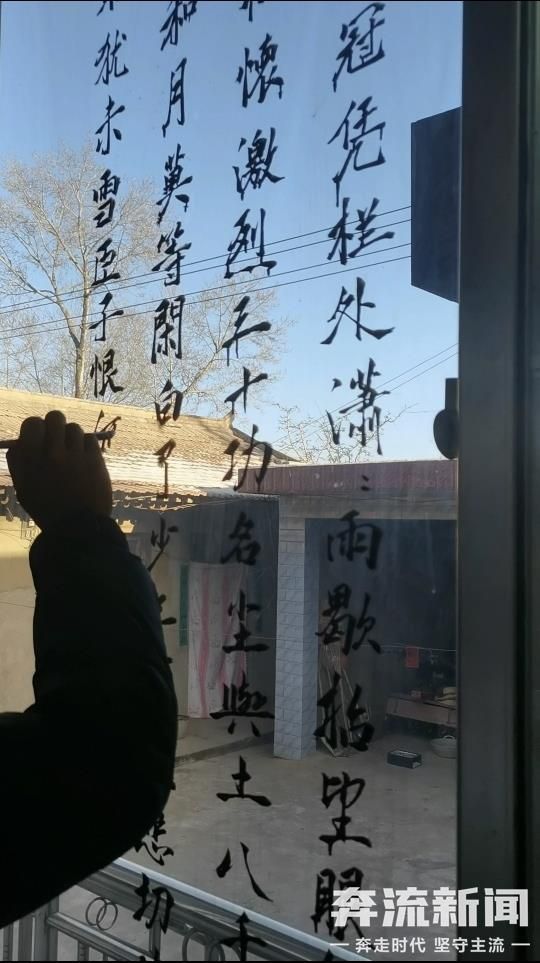 冠凭栏处潇〻雨歇抬望眼
懷激烈三十功名尘與土八千
和月莫等閑白了少年切
犹未雪臣子恨何
奔流新闻
奔走时代 坚守主流